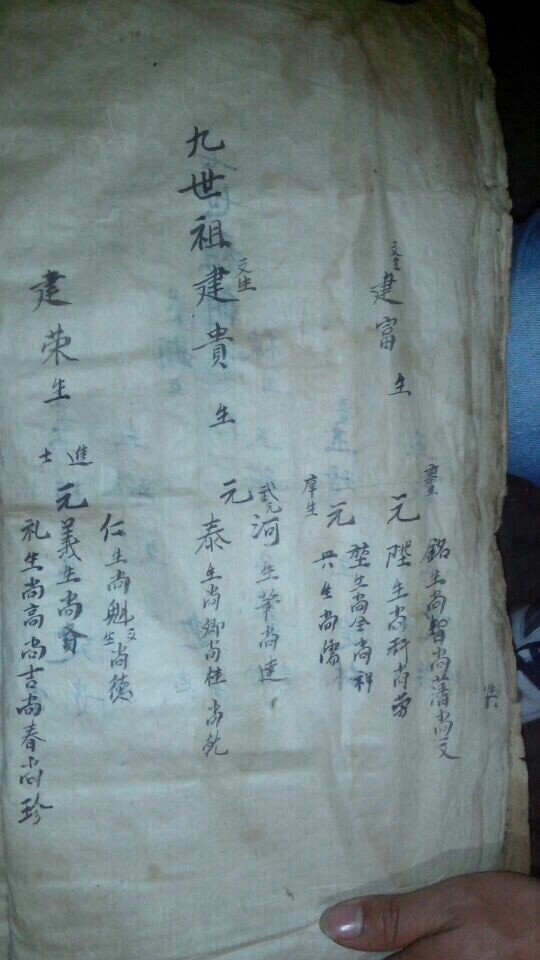 建富生
元
銘生尚智尚藩尚文
陛生尚科尚劳
元
堃生尚全尚科
兴生尚儒
庠生
九世祖建貴生
文生
元
武元
河生華尚達
泰生尚卿尚桂尚乾
建荣生
進士
元
仁生尚魁尚德
文生
義生尚賓
礼生尚高尚吉尚春尚珍